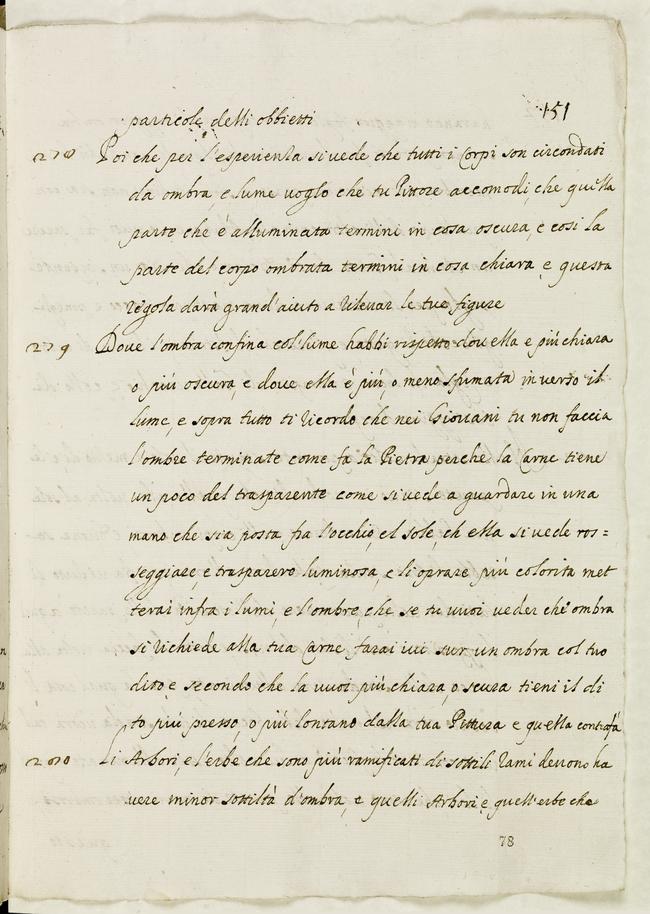 151
particole delli obbietti
278 Poi che per l'esperienza si vede che tutti i Corpi son circondati
da ombra, e lume uoglo che tu Pittore accomodi, che quella
parte che è alluminata termini in cosa oscura, e cosi la
parte del corpo ombrata termini in cosa chiara, e questa
regola darà grand'aiuto a rileuar le tue figure
279 Doue l'ombra confina col lume habbi rispetto dou ella e più chiara
o più oscura, e doue ella è più, o meno sfumata inuerso il
lume, e sopra tutto ti ricordo che nei Giouani tu non faccia
l'ombre terminate come fa la Pietra perche la Carne tiene
un poco del trasparente come si uede a guardare in una
mano che sia posta fra l'occhio, el sole, ch ella si uede ros=
seggiare, e trasparere luminosa, e li oprare più colorita met
terai infra i lumi, e l'ombre, che se tu uuoi ueder che ombra
si richiede alla tua Carne farai iui sur un ombra col tuo
dito, e secondo che la uuoi più chiara, o scura tieni il di
to più presso, o più lontano dalla tua Pittura e quella contrafà
280 Li Arbori, e l'erbe che sono più ramificati di sottili rami deuono ha
uere minor sottiltà d'ombra, e quelli Arbori, e quell'erbe che
78